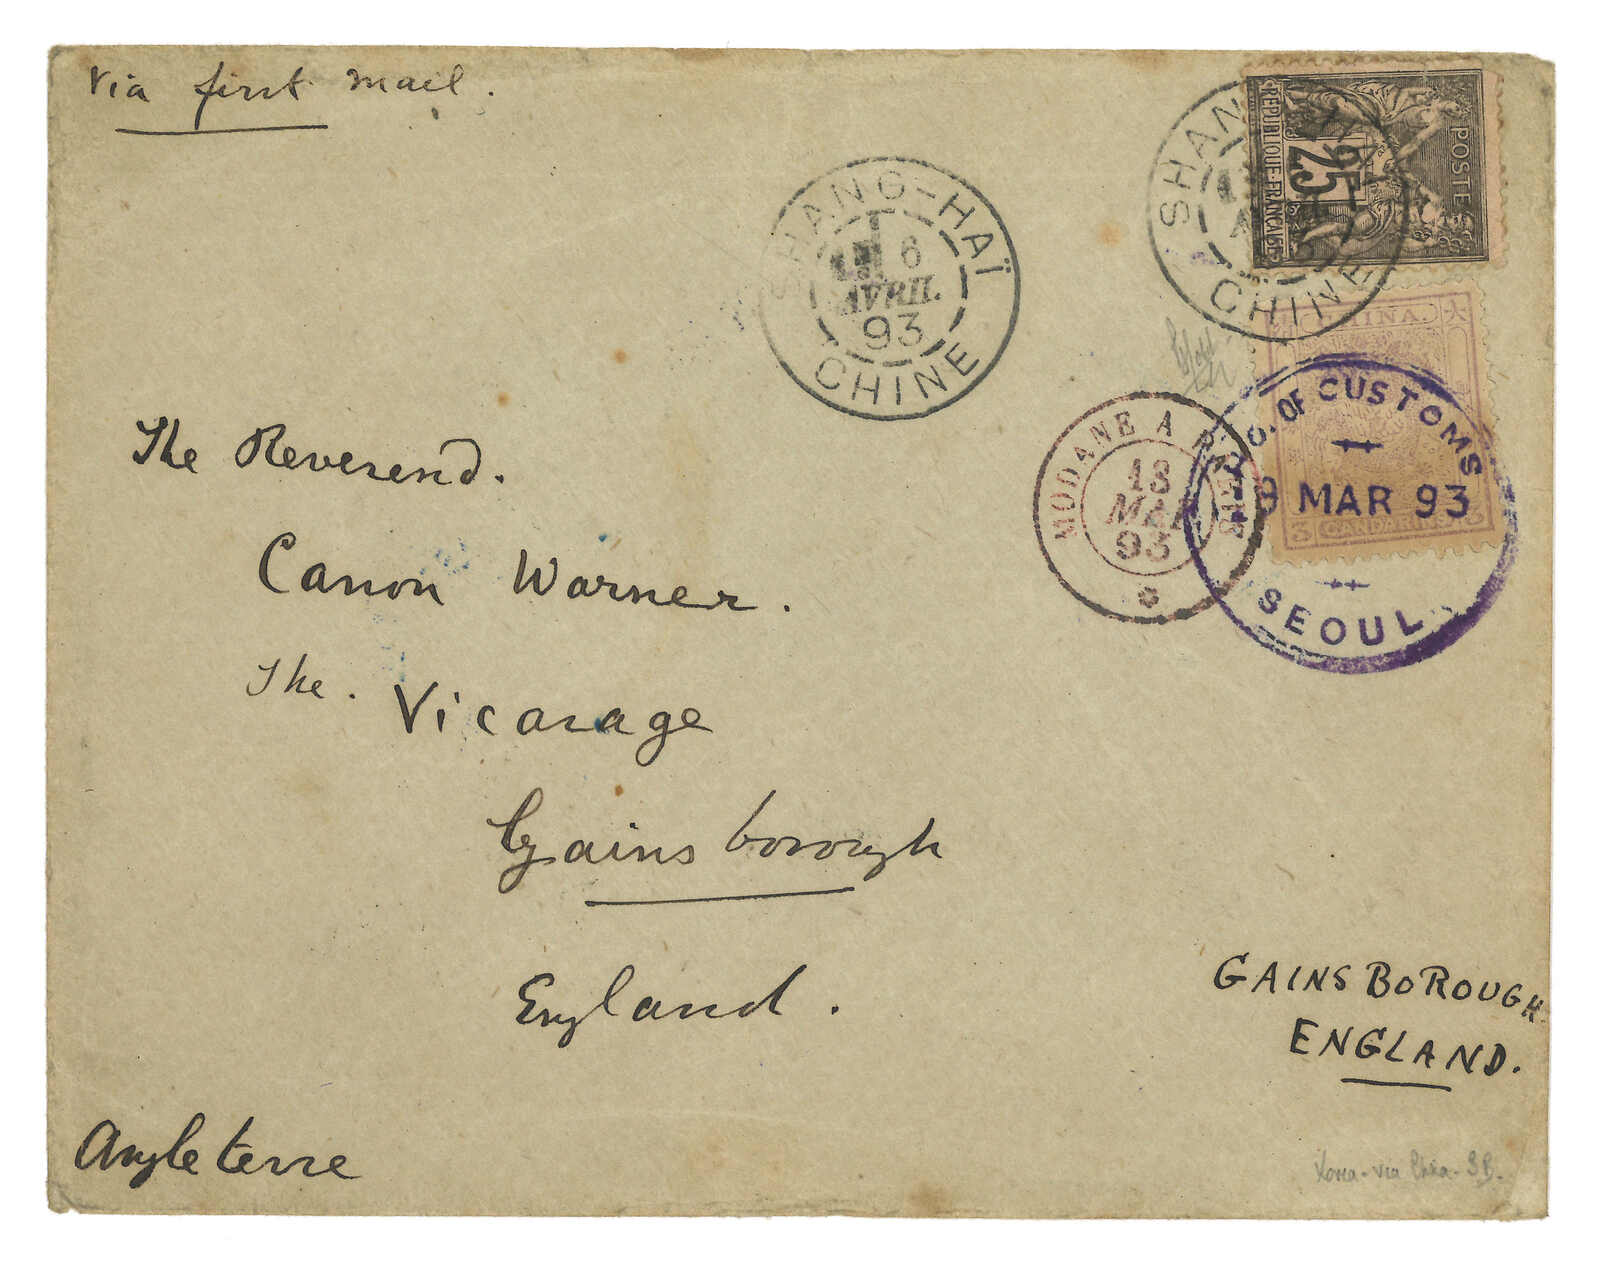 Via first mail.
SHANG-HAÏ
6
AVRIL
93
CHINE
SHANG
CHINE
POSTE
25
REPUBLIQUE FRANÇAISE
CHINA.
大
3 CANDARINS 3
OF CUSTOMS
MAR 93
SEOUL
MODANE A PARIS
13
MAI
93
The Reverend.
Canon Warner.
The. Vicarage
Gainsborough
England.
GAINSBOROUGH
ENGLAND.
Angleterre
Korea - via China -